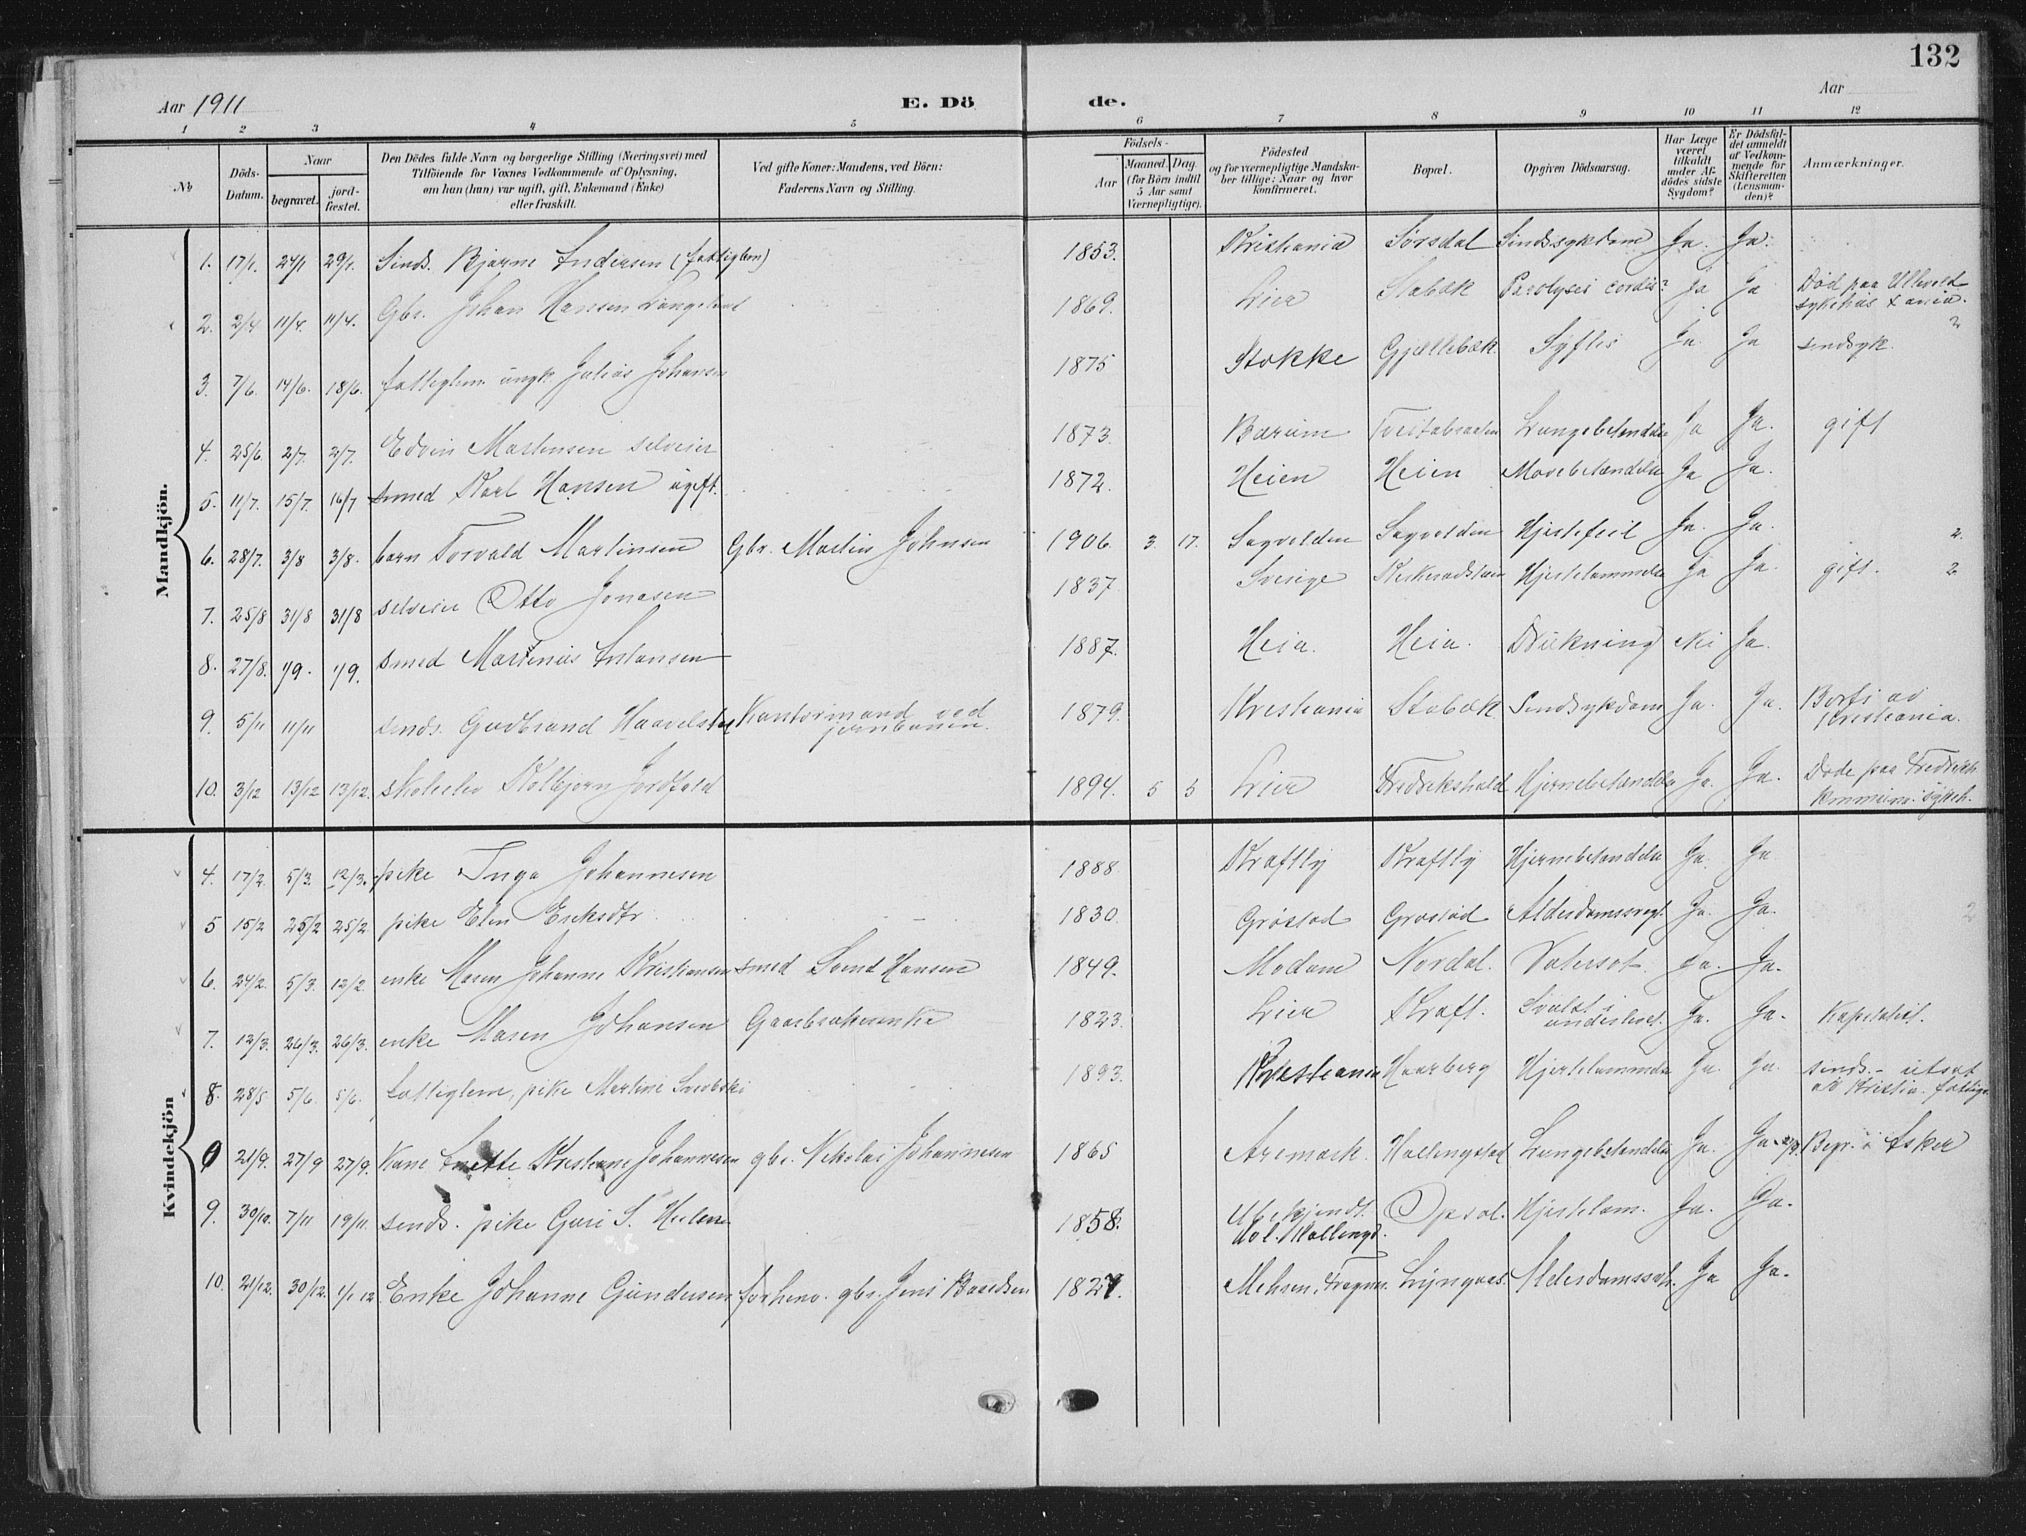 132
Aar 1911
E. Dö
de.
Aar
1 2 3 4 5 6 7 8 9 10 11 12
No
Döds-Datum.
Naar
begravet.
jord-fæstet.
Den Dödes fulde Navn og borgerlige Stilling (Næringsvei) med
Tilföiende for Voxnes Vedkommende af Oplysning,
om han (hun) var ugift, gift, Enkemand (Enke)
eller fraskilt.
Ved gifte Koner: Mandens, ved Börn:
Faderens Navn og Stilling.
Födsels-
Aar
Maaned. Dag.
(for Börn indtil
5 Aar samt
Værnepligtige).
Födested
og for værnepligtige Mandska-
ber tillige: Naar og hvor
konfirmeret.
Bopæl.
Opgiven Dödsaarsag.
Har Læge
været
tilkaldt
under Af-
dödes sidste
Sygdom?
Er Dödsfal-
det anmeldt
af Vedkom-
mende for
Skifteretten
(Lensman-
den)?
Anmærkninger.
Mandkjön.
1. 17/1. 24/1 29/1. Sinds. Bjarne Andersen (fattiglem) 1853. Kristiania Sörsdal Sindssykdom Ja. Ja.
2. 2/4. 11/4. 11/4. Gbr. Johan Hansen 1869. Lier Stabæk Paralysis cordis? Ja Ja Död paa Ullevold
sykehus
3. 7/6. 14/6. 18/6. fattiglem ungk. Julius Johansen 1875 Stokke Gjællebæk Syflis Ja. Ja sindsyk. 2
4. 25/6. 2/7. 2/7. Edvin Martensen selveier 1873. Bærum Lungebetændelse Ja Ja. gift
5. 11/7. 15/7. 16/7 smed Karl Hansen ugift. 1872. Heien Heien Mavebetændelse Ja Ja.
6. 28/7. 3/8 3/8. barn Torvald Martinsen Gbr. Martin Johnsen 1906. 3. 17. Sagvolden Sagvolden Hjertefeil Ja. Ja. 2.
7. 25/8 31/8 31/8 selveier Otto Jonasen 1837 Sverige Hjertelammelse Ja Ja. gift. 2
8. 27/8. 1/9. 1/9. smed Martinius Antonsen 1887. Heia. Heia. Drukning Nei Ja.
9. 5/11 11/11 sinds. Gudbrand Kontormand ved
jernbanen. 1879. Kristiania Stabæk Sindssykdom Ja. Ja. Borts. av
Kristiania.
10. 3/12 13/12 13/12. skoleelev Kolbjørn Jordfald 1894. 5 5 Lier Fredrikshald Hjernebetændelse Ja. Ja. Døde paa Fredriksh.
kommun. sykeh.
Kvindekjön
4. 17/2. 5/3. 12/3. pike Inga Johannesen 1888 Kraftly Kraftly Hjernebetændelse Ja. Ja
5 15/2 25/2 25/2 pike Elen Eriksdtr 1830. Gröstad Grøstad Alderdomssvagh. Ja. Ja. 2
6. 24/2. 5/3. 12/2. enke Maren Johanne Kristiansen smed Svend Hansen 1849. Modum Nordal. Vatersot Ja. Ja.
7. 12/3. 26/3. 26/3. enke Maren Johansen Gaardbrukerenke 1823. Lier Kraft. Svulst i
underlivet. Ja. Ja. Kapitalist.
8. 28/5 5/6. 5/6. fattiglem, pike Martine 1893. Kristiania Haarberg Hjertelammelse Ja. Ja. sinds. - utsat
av Kristia. fattigv.
9 21/9. 27/9 27/9. Kone Anette Kristiane Johannesen gbr. Nikolai Johannesen 1865 Aremark. Hallingstad Lungebetændelse Ja. Ja. Begr. i Asker
9. 30/10. 7/11 19/11. sinds. pike Guri S. 1858. Ubekjendt
Aal. Hallingd. Opsal. Hjertelam. Ja. Ja.
10. 21/12. 30/12. 1/1 12 Enke Johanne Gundersen forhenv. gbr. Jens 1827. Alderdomssvgh. Ja Ja.